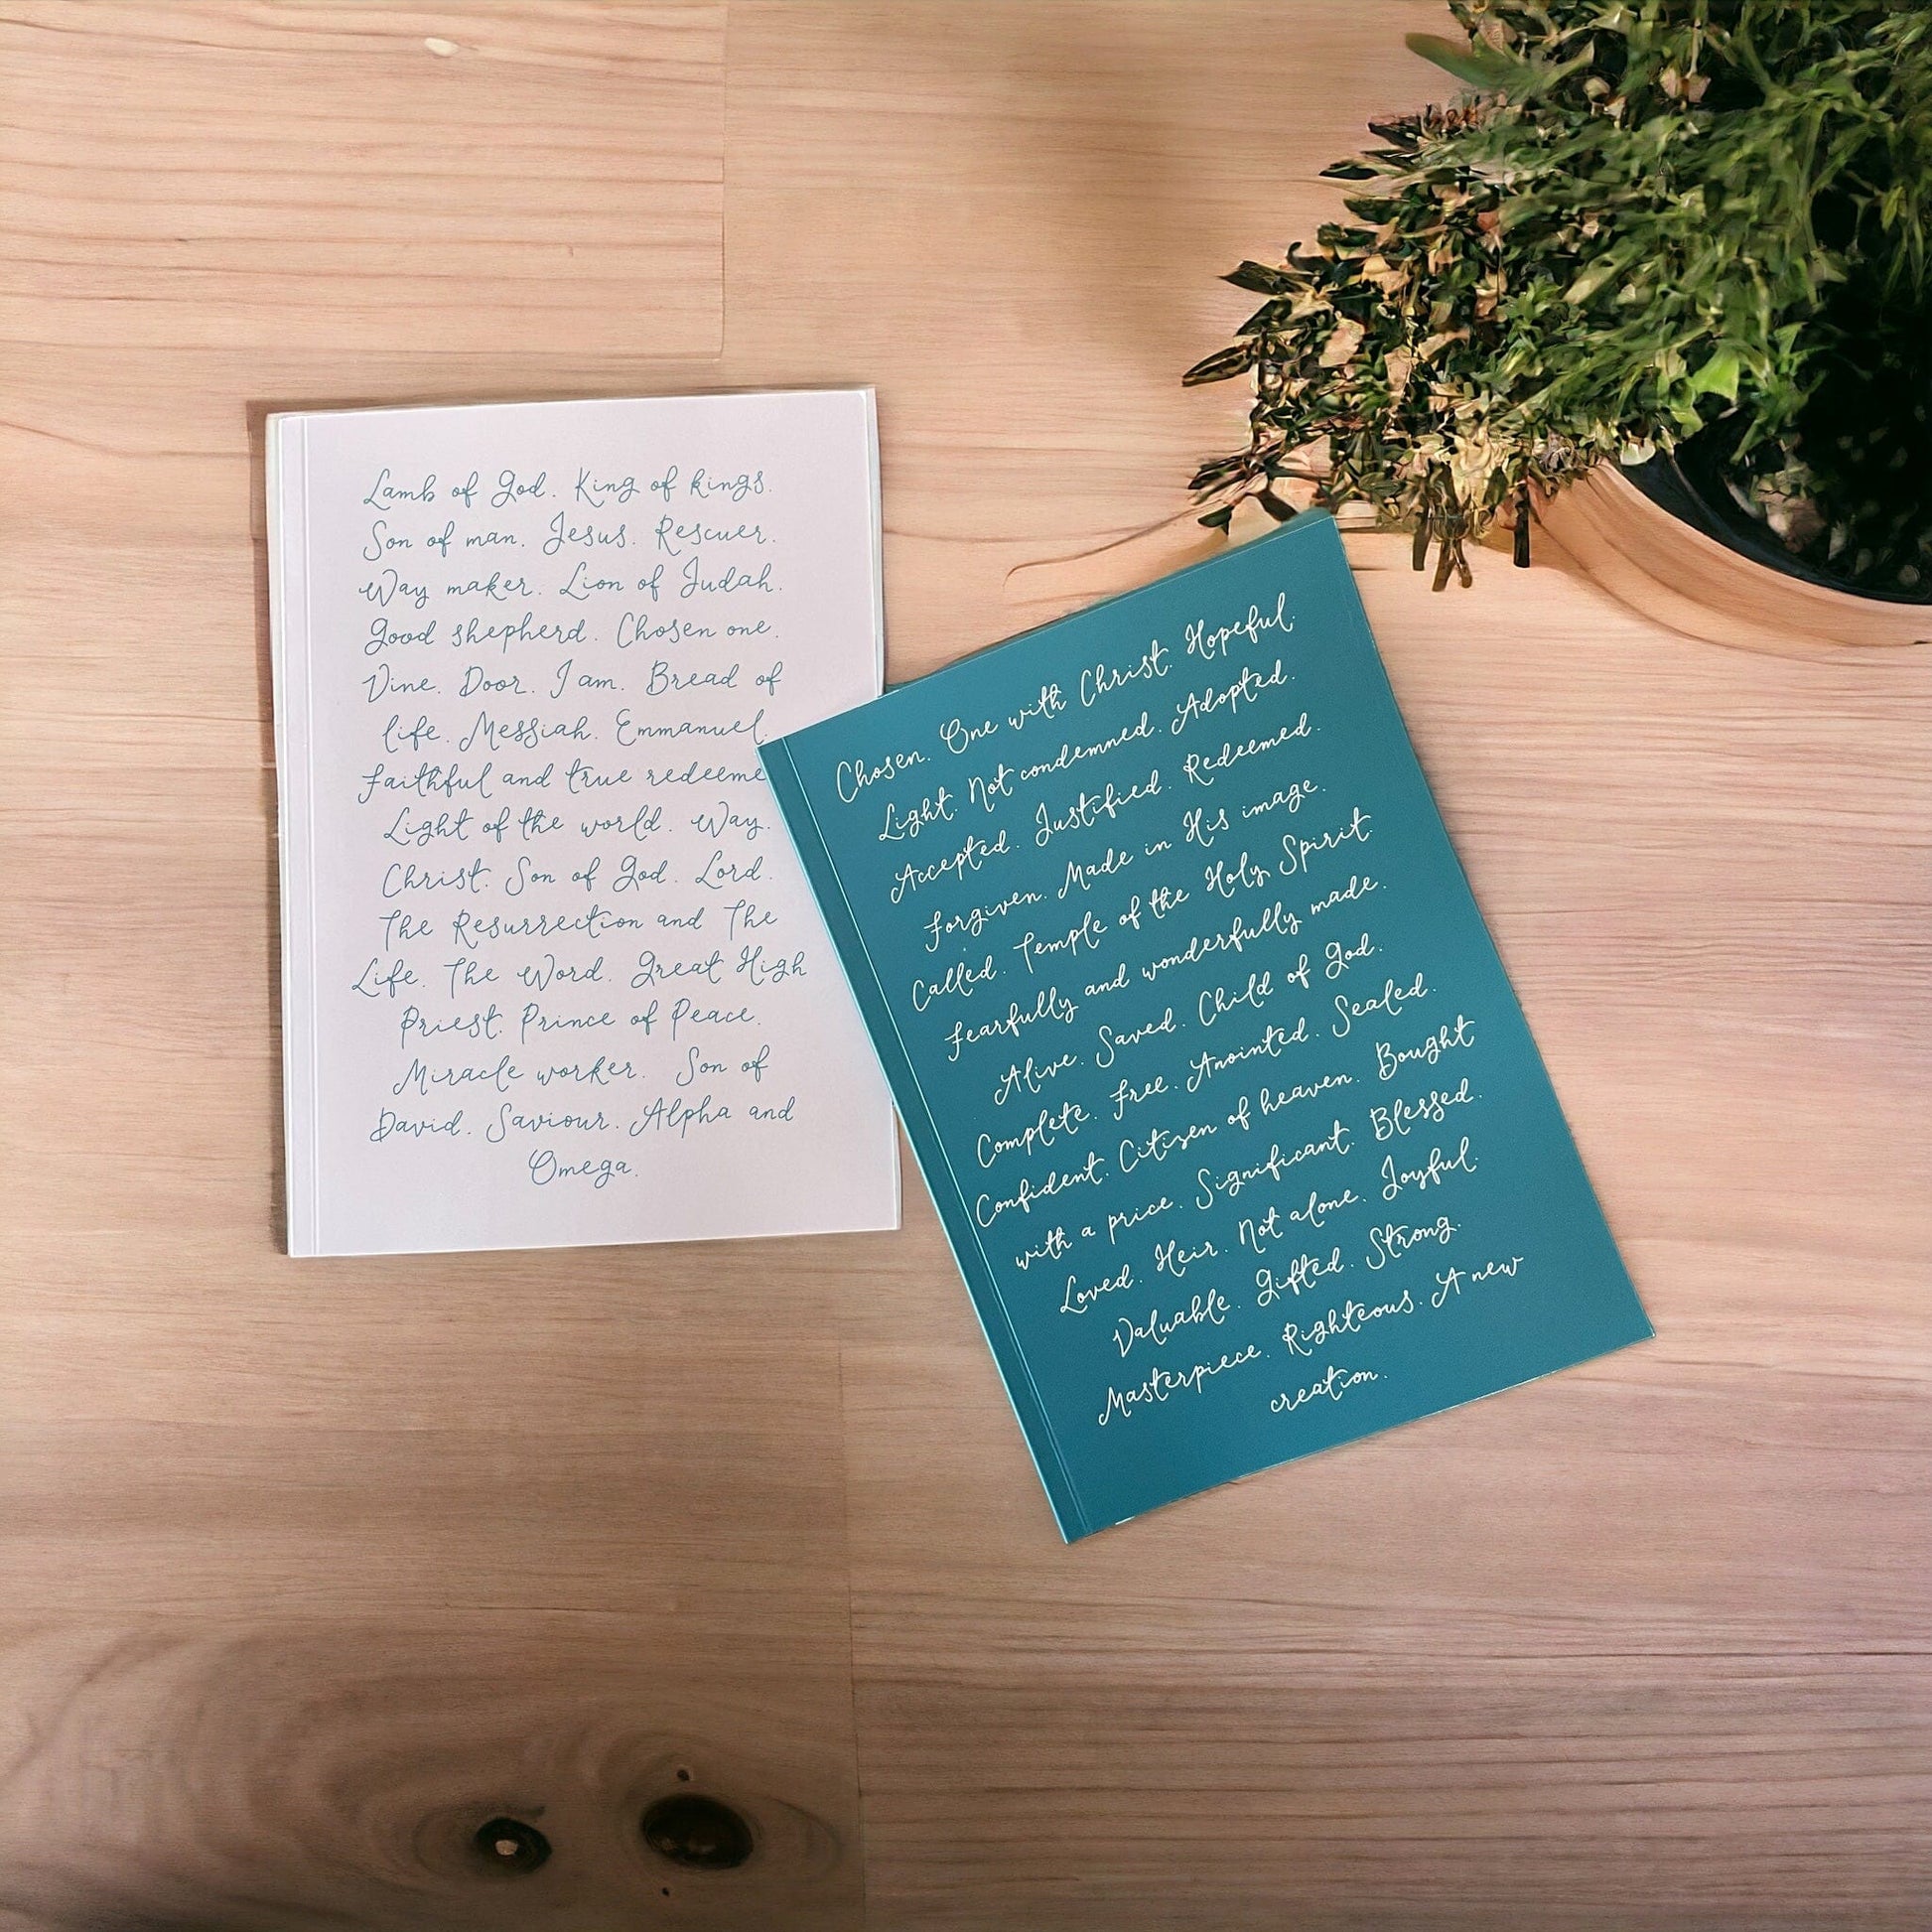 Lamb of God. King of kings.
Son of man. Jesus. Rescuer.
Way maker. Lion of Judah.
Good shepherd. Chosen one.
Vine. Door. I am. Bread of
life. Messiah. Emmanuel.
Faithful and true redeeme
Light of the world. Way.
Christ. Son of God. Lord.
The Resurrection and The
Life. The Word. Great High
Priest. Prince of Peace.
Miracle worker. Son of
David. Saviour. Alpha and
Omega.
Chosen. One with Christ. Hopeful.
Light. Not condemned. Adopted.
Accepted. Justified. Redeemed.
Forgiven. Made in His image.
Called. Temple of the Holy Spirit.
Fearfully and wonderfully made.
Alive. Saved. Child of God.
Complete. Free. Anointed. Sealed.
Confident. Citizen of heaven. Bought
with a price. Significant. Blessed.
Loved. Heir. Not alone. Joyful.
Valuable. Gifted. Strong.
Masterpiece. Righteous. A new
creation.